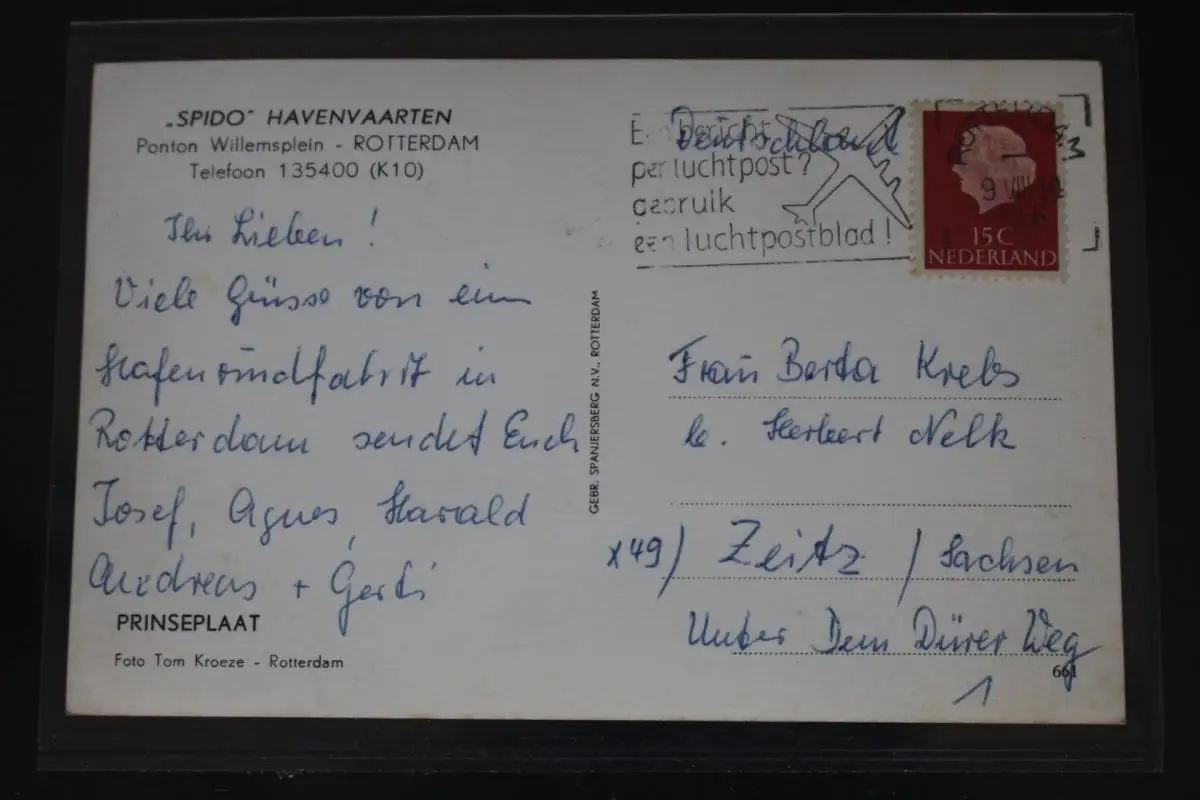 „SPIDO" HAVENVAARTEN
Ponton Willemsplein - ROTTERDAM
Telefoon 135400 (K10)
Ihr Lieben!
Viele Grüsse von ein
Hafenrundfahrt in
Rotterdam sendet Euch
Josef, Agnes, Harald
Andreas + Gerti
PRINSEPLAAT
Foto Tom Kroeze - Rotterdam
GEBR. SPANJERSBERG N.V., ROTTERDAM
Een bericht
per luchtpost?
gebruik
een luchtpostblad!
Deutschland
ROTTERDAM
9 VIII
15C
NEDERLAND
Frau Berta Krebs
b. Herbert Nelk
x49) Zeitz / Sachsen
Unter Dem Dürer Weg
661
1